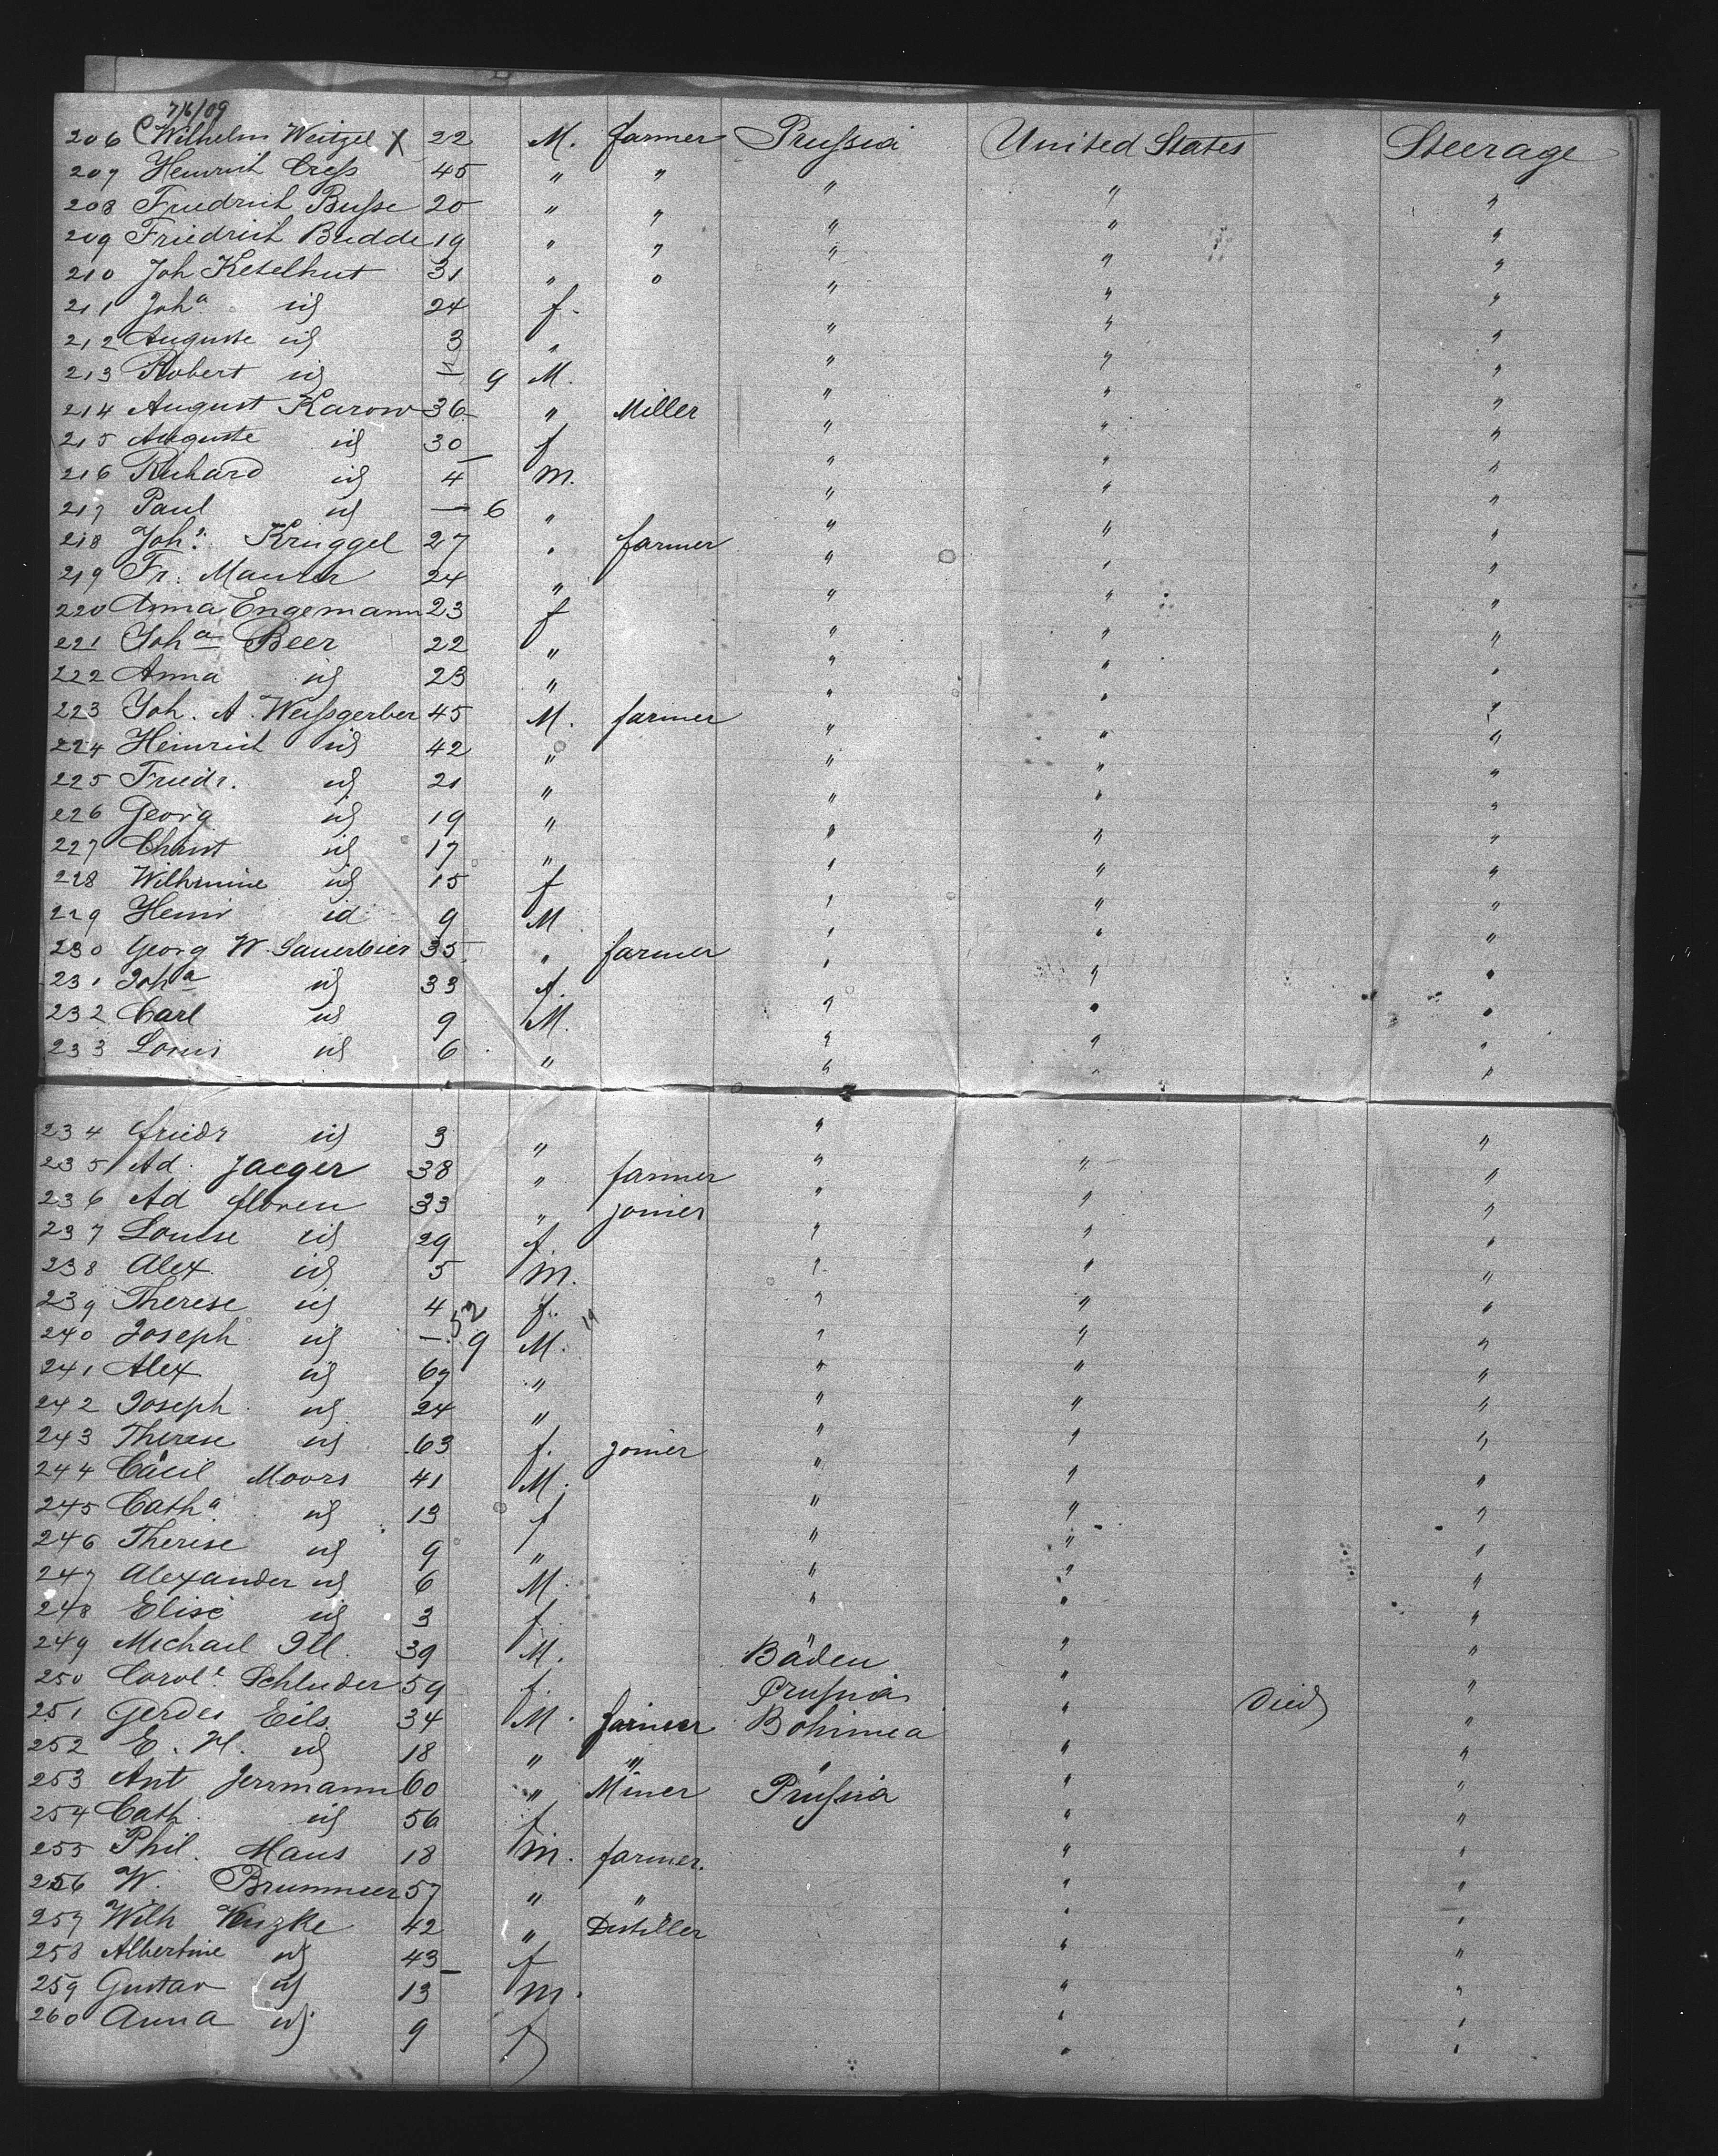 7/6/09
206 Wilhelm Weitzel X 22 M. farmer Prussia United States Steerage
207 Heinrich Cress 45 " " " " "
208 Friedrich Busse 20 " " " " "
209 Friedrich Budde 19 " " " " "
210 Joh Ketelhut 31 " " " " "
211 Joha id 24 f. " " "
212 Auguste id 3 " " " "
213 Robert id — 9 M. " " "
214 August Karow 36 " Miller " " "
215 Auguste id 30 f " " "
216 Richard id 4 M. " " "
217 Paul id — 6 " " " "
218 Joh: Kruggel 27 " farmer " " "
219 Fr. Maurer 24 " " " "
220 Anna Engemann 23 f " " "
221 Joha Beer 22 " " " "
222 Anna id 23 " " " "
223 Joh. A. Weissgerber 45 M. farmer " " "
224 Heinrich id 42 " " " "
225 Friedr. id 21 " " " "
226 Georg id 19 " " " "
227 Christ id 17 " " " "
228 Wilhmine id 15 f " " "
229 Heinr id 9 M " " "
230 Georg W. Sauerbier 35 " farmer " " "
231 Joha id 33 f. " " "
232 Carl id 9 M. " " "
233 Louis id 6 " " " "
234 Friedr id 3 " " "
235 Ad. Jaeger 38 " farmer " " "
236 Ad floren 33 " joiner " " "
237 Louise id 29 f. " " "
238 Alex id 5 M. " " "
239 Therese id 4 f. " " "
240 Joseph id — 9 M. " " "
241 Alex id 67 " " " "
242 Joseph id 24 " " " "
243 Therese id 63 f. joiner " " "
244 Cäcil Moors 41 M. " " "
245 Catha id 13 f " " "
246 Therese id 9 " " " "
247 Alexander id 6 M. " " "
248 Elise id 3 f " " "
249 Michael Ill 39 M. Baden " "
250 Carole Schluder 59 f. Prussia " Died "
251 Gerdes Eils 34 M. farmer Bohimea " "
252 E. H. id 18 " " " " "
253 Ant Jerrmann 60 " Miner Prussia " "
254 Cath id 56 f " "
255 Phil. Maus 18 M. farmer. " "
256 W. Brummer 57 " " " "
257 Wilh 42 " Distiller " "
258 Albertine id 43 f " "
259 Gustav id 13 M. " "
260 Anna id 9 f " "